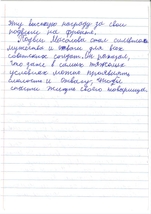 эту высокую награду за свои
подвиги на фронте.
Подвиг Масалова стал символом
мужества и для всех
советских солдат. Он показал,
что даже в самых тяжелых
условиях можно проявлять
смелость и отвагу, чтобы
спасти жизнь своего товарища